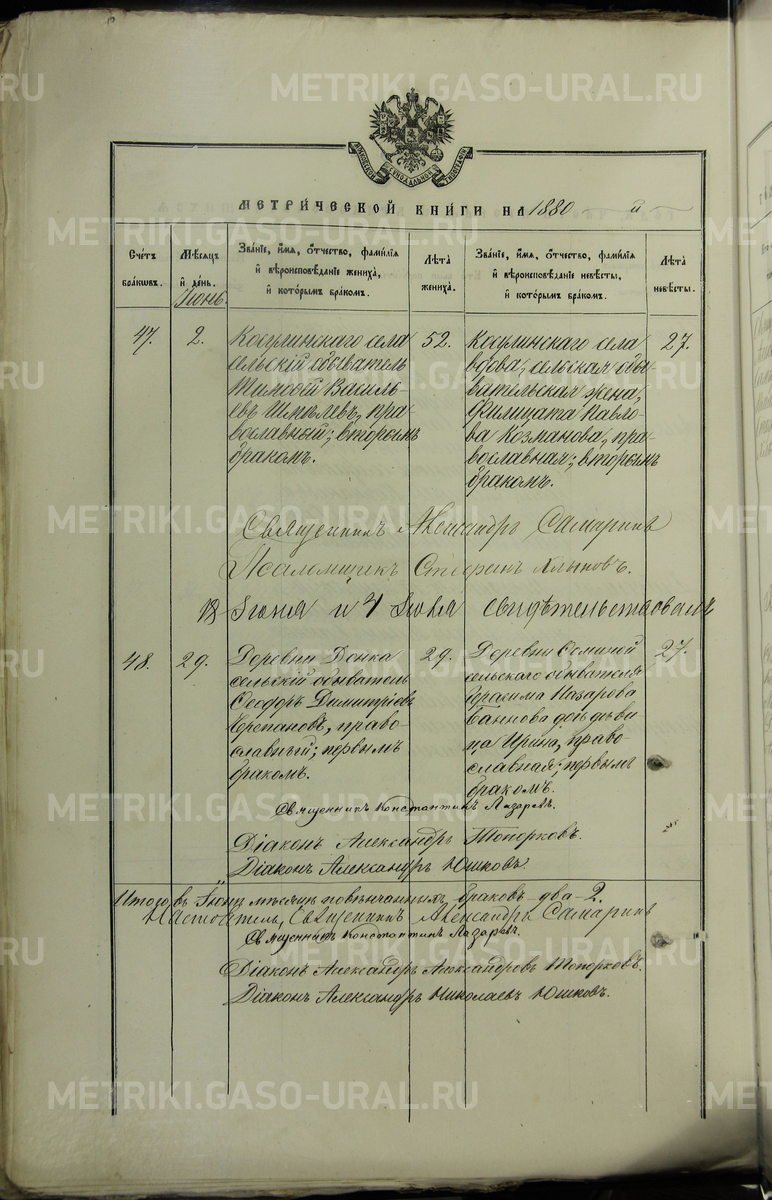 METRIKI.GASO-URAL.RU
МОСКОВСКОЙ СѴНОДАЛЬНОЙ ТИПОГРАФІИ
МЕТРИ́ЧЕСКОЙ КНИ́ГИ НА 1880 й
Сче́тъ бра́ковъ.
Мѣ́сяцъ й де́нь.
Зва́нїе, и́мя, ѻ́тчество, фами́лїя й вѣроисповѣ́данїе жениха́, й кото́рымъ бра́комъ.
Лѣ́та жениха́.
Зва́нїе, и́мя, ѻ́тчество, фами́лїя й вѣроисповѣ́данїе невѣ́сты, й кото́рымъ бра́комъ.
Лѣ́та невѣ́сты.
Іюнь.
47. 2.
Косулинскаго села
сельскій обыватель
Тимофей Василь-
евъ Шмелевъ, пра-
вославный; вторымъ
бракомъ.
52.
Косулинскаго села
вдова, сельская обы-
вательская жена,
Филицата Павло-
ва Козманова, пра-
вославная; вторымъ
бракомъ.
27.
Священникъ Александръ Самаринъ
Псаломщикъ Стефанъ
18 Іюня и 4 Іюля свидѣтельствовалъ
48. 29.
Деревни
сельскій обыватель
Ѳеодоръ Димитріевъ
Черепановъ, право-
славный; первымъ
бракомъ.
29.
Деревни
сельскаго обывателя
Герасима Назарова
дочь дѣви-
ца Ирина, право-
славная; первымъ
бракомъ.
27.
Священникъ Константинъ Лазаревъ.
Діаконъ Александръ Топорковъ.
Діаконъ Александръ Юшковъ.
Итого въ Іюнѣ мѣсяцѣ повѣнчанныхъ браковъ два-2.
Настоятель, Священникъ Александръ Самаринъ
Священникъ Константинъ Лазаревъ.
Діаконъ Александръ Александровъ Топорковъ.
Діаконъ Александръ Николаевъ Юшковъ.